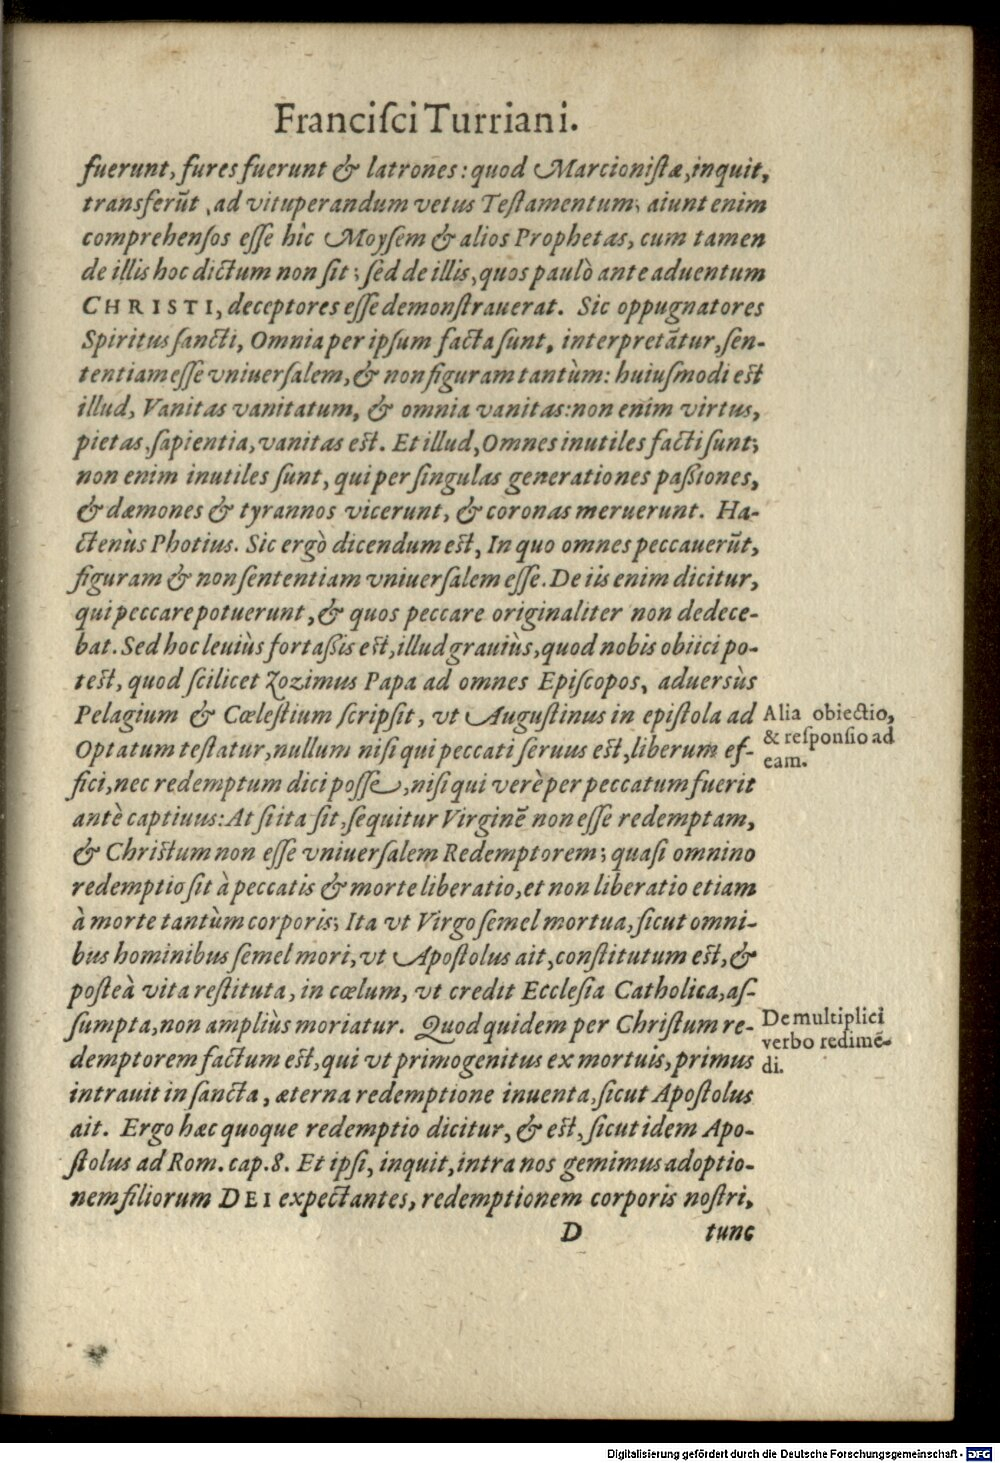 Franciſci Turriani.
fuerunt, fures fuerunt & latrones: quod Marcioniſtæ, inquit,
transferūt, ad vituperandum vetus Teſtamentum; aiunt enim
comprehenſos eſſe hîc Moyſem & alios Prophetas, cum tamen
de illis hoc dictum non ſit; ſed de illis, quos paulò ante aduentum
CHRISTI, deceptores eſſe demonſtrauerat. Sic oppugnatores
Spiritus ſancti, Omnia per ipſum facta ſunt, interpretātur, ſen-
tentiam eſſe vniuerſalem, & non figuram tantùm: huiuſmodi eſt
illud, Vanitas vanitatum, & omnia vanitas: non enim virtus,
pietas, ſapientia, vanitas eſt. Et illud, Omnes inutiles facti ſunt;
non enim inutiles ſunt, qui per ſingulas generationes paßiones,
& dæmones & tyrannos vicerunt, & coronas meruerunt. Ha-
ctenùs Photius. Sic ergò dicendum eſt, In quo omnes peccauerūt,
figuram & non ſententiam vniuerſalem eſſe. De iis enim dicitur,
qui peccare potuerunt, & quos peccare originaliter non dedece-
bat. Sed hoc leuiùs fortaßis eſt, illud grauiùs, quod nobis obiici po-
teſt, quod ſcilicet Zozimus Papa ad omnes Epiſcopos, aduersùs
Pelagium & Cœleſtium ſcripſit, vt Auguſtinus in epiſtola ad
Optatum teſtatur, nullum niſi qui peccati ſeruus eſt, liberum ef-
fici, nec redemptum dici poſſe, niſi qui verè per peccatum fuerit
antè captiuus: At ſi ita ſit, ſequitur Virginē non eſſe redemptam,
& Chriſtum non eſſe vniuerſalem Redemptorem; quaſi omnino
redemptio ſit à peccatis & morte liberatio, et non liberatio etiam
à morte tantùm corporis; Ita vt Virgo ſemel mortua, ſicut omni-
bus hominibus ſemel mori, vt Apoſtolus ait, conſtitutum eſt, &
poſteà vita reſtituta, in cœlum, vt credit Eccleſia Catholica, aſ-
ſumpta, non ampliùs moriatur. Quod quidem per Chriſtum re-
demptorem factum eſt, qui vt primogenitus ex mortuis, primus
intrauit in ſancta, æterna redemptione inuenta, ſicut Apoſtolus
ait. Ergo hæc quoque redemptio dicitur, & eſt, ſicut idem Apo-
ſtolus ad Rom. cap. 8. Et ipſi, inquit, intra nos gemimus adoptio-
nem filiorum DEI expectantes, redemptionem corporis noſtri,
D tunc
Alia obiectio,
& reſponſio ad
eam.
De multiplici
verbo redimē-
di.
Digitalisierung gefördert durch die Deutsche Forschungsgemeinschaft - DFG